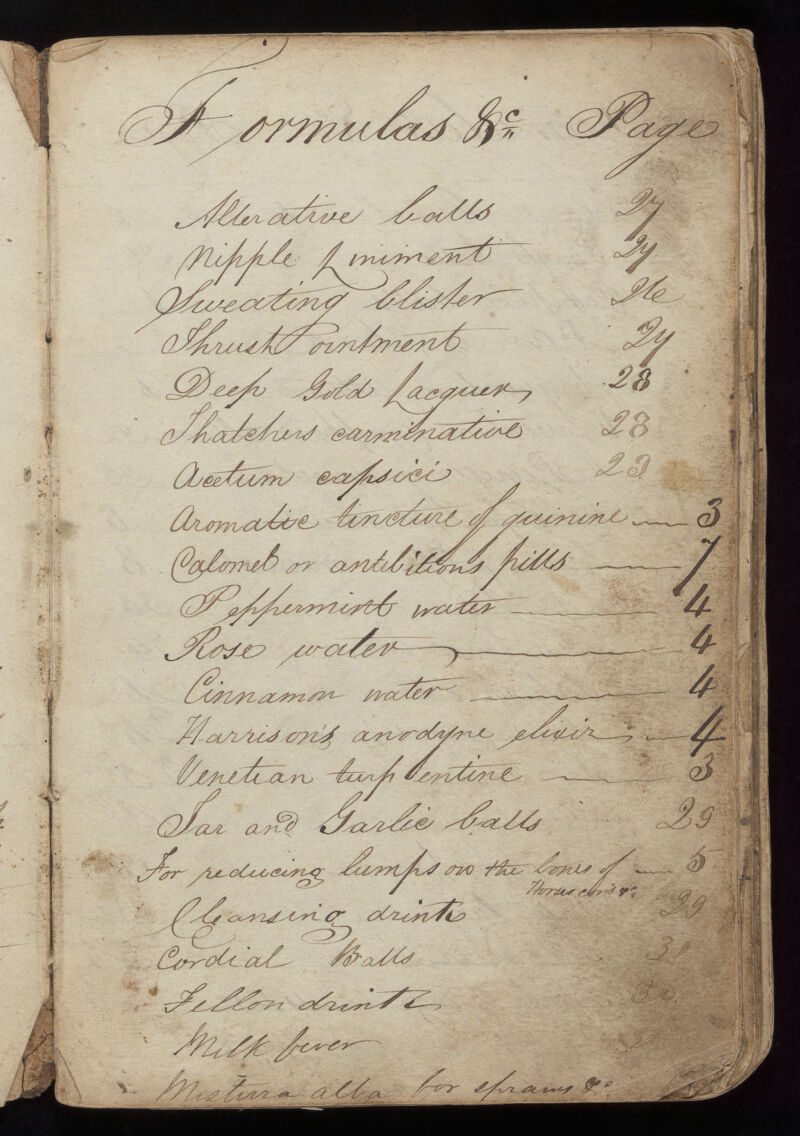 Formulas &c Page
Alterative balls 27
Nipple Liniment 27
Sweating blister 26
Thrush ointment 27
Deep Gold Lacquer 28
Thatchers carminative 28
Acetum capsici 29
Aromatic tincture of quinine 3
Calomel or antibilious pills 7
Peppermint water 4
Rose water 4
Cinnamon water 4
Harrison's anodyne elixir 4
Venetian turpentine 3
Tar and Garlic balls 29
For reducing lumps on the bones of 5
Horses
Cleansing drink 29
Cordial Balls
Fellon drink
Milk fever
Mistura alba for sprains &c